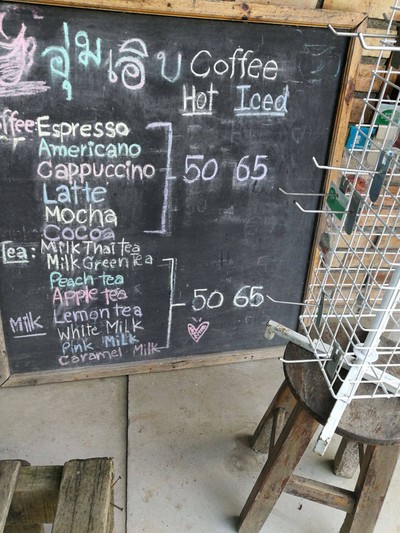 อุ่มเอิบ Coffee
Hot Iced
Coffee: Espresso
Americano
Cappuccino 50 65
Latte
Mocha
Cocoa
Tea: Milk Thai tea
Milk Green Tea
Peach tea
Apple tea 50 65
Lemon tea
Milk White Milk
Pink Milk
Caramel Milk